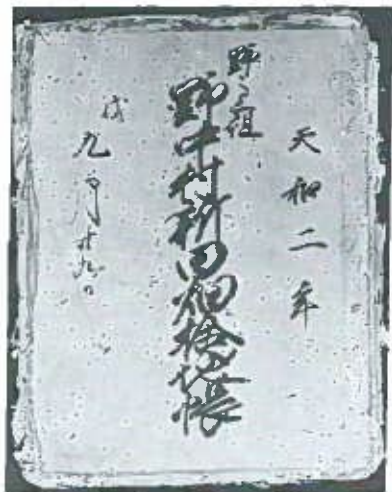 天和二年
野中村新田畑検地帳
戌
九月廿九日